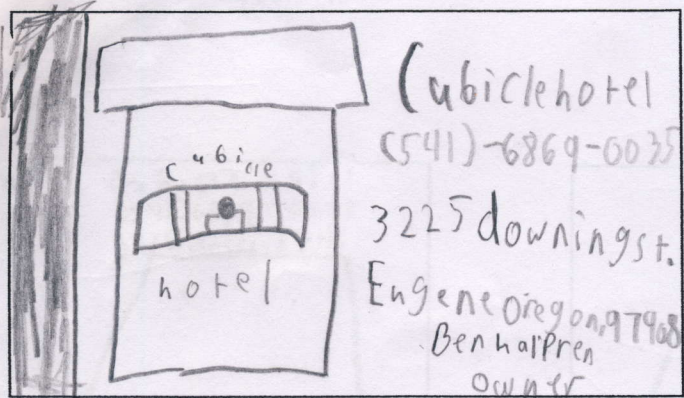 Cubicle
hotel
Cubiclehotel
(541)-6869-0035
3225 downingst.
Eugene oregon, 97908
Ben halpren
owner